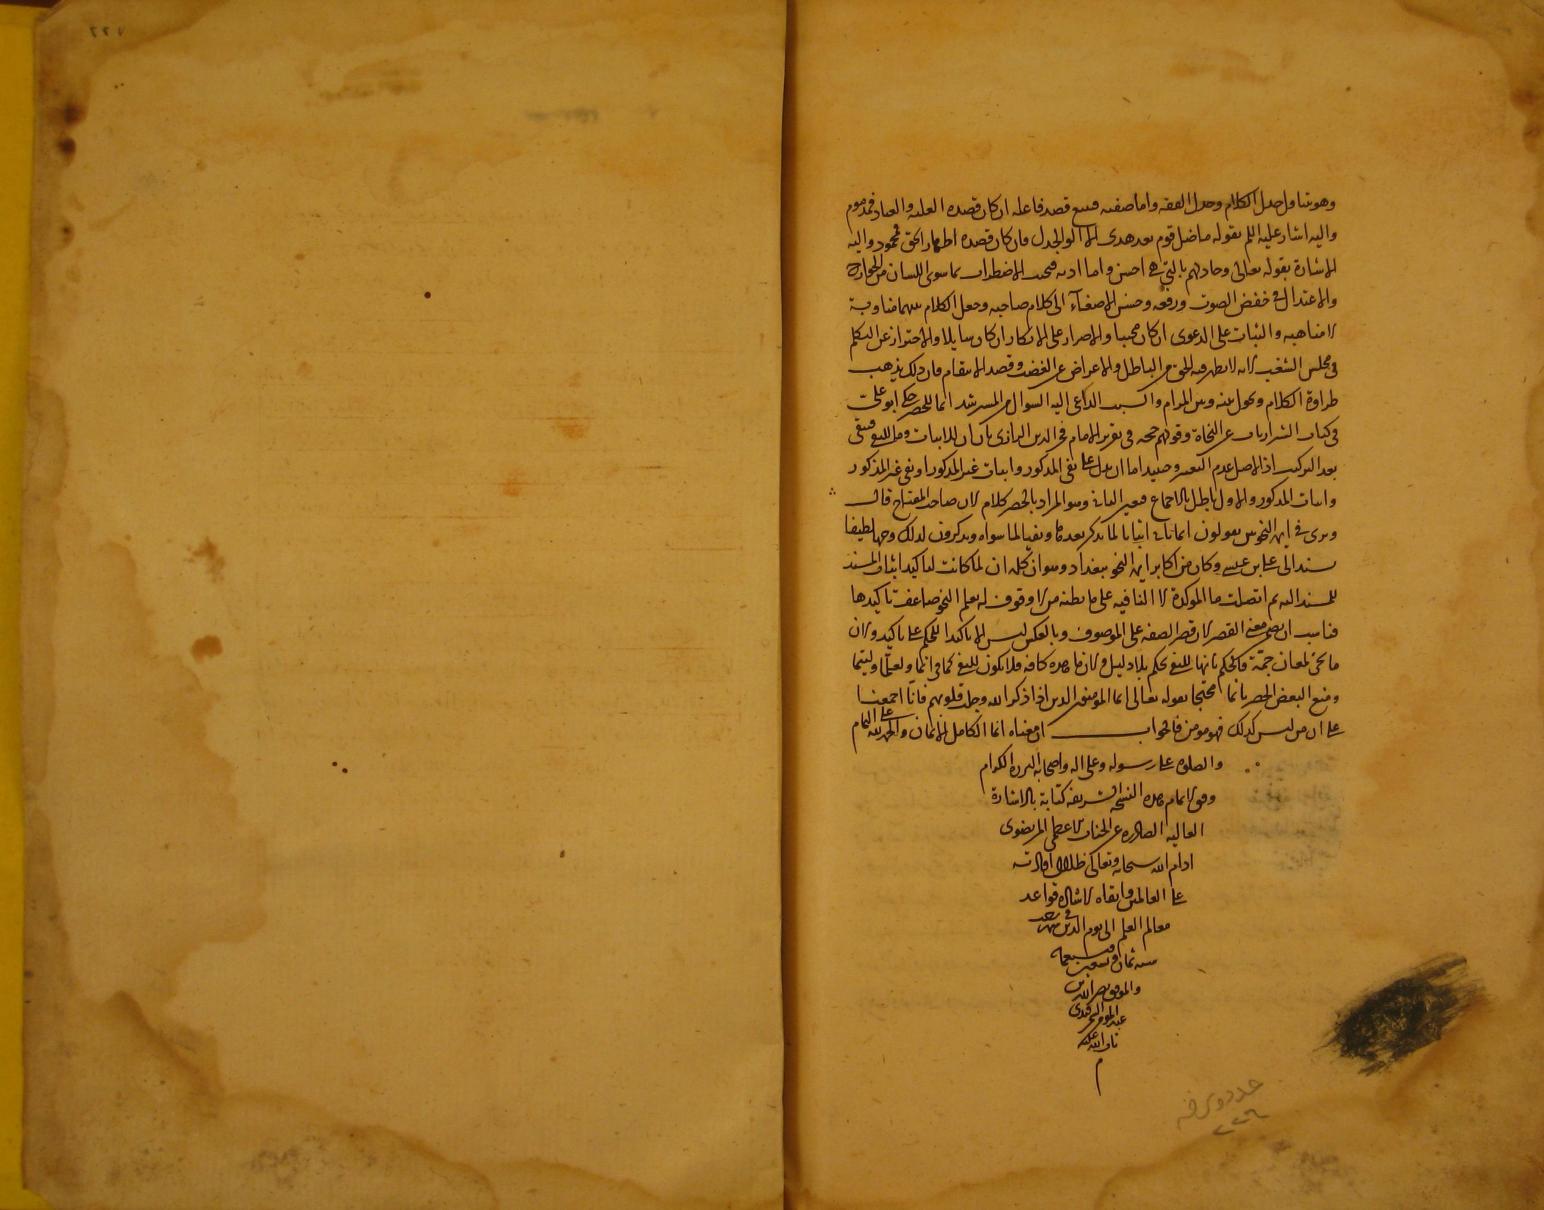 وهو يتناول جدل الكلام وجدل الفقه واما صفته فيتبع قصد فاعله ان كان قصده الغلبة والعناد فمذموم
واليه اشار عليه السلم بقوله ما ضل قوم بعد هدى الا اوتوا الجدل فان كان قصده اظهار الحق فمحمود واليه
الاشارة بقوله تعالى وجادلهم بالتي هي احسن واما ادبه فتجنب الاضطراب بما سوى اللسان من الجوارح
والاعتدال في خفض الصوت ورفعه وحسن الاصغاء الى كلام صاحبه وجعل الكلام بينهما مناوبة
لا مناهبة والثبات على الدعوى ان كان مجيبا والاصرار على الانكار ان كان سايلا والاحتراز عن التكلم
في مجلس الشغب لانه لا يظهر فيه الحق من الباطل والاعراض عن الغضب وقصد الانتقام فان ذلك يذهب
طراوة الكلام ويحول بينه وبين المرام والسبب الداعي اليه السوال من المسترشد انما للحصر حكى ابو علي
في كتاب الشيرازيات عن النحاة وقولهم حجة في تقرير الامام فخر الدين الرازي بان ان للاثبات وما للنفي فيبقى
بعد التركيب اذ الاصل عدم التغيير وحينئذ اما ان يدل على نفي المذكور واثبات غير المذكور او نفي غير المذكور
واثبات المذكور والاول باطل بالاجماع فتعين الثاني وهو المراد بالحصر كلام لان صاحب المفتاح قال
وترى في ايمة النحو يقولون انما تاتي اثباتا لما يذكر بعدها ونفيا لما سواه ويذكرون لذلك وجها لطيفا
يسند الى علي بن عيسى وكان من اكابر ايمة النحو ببغداد وهو ان كلمة ان لما كانت لتاكيد اثبات المسند
للمسند اليه ثم اتصلت ما الموكدة لا النافية على ما يظنه من لا وقوف له بعلم النحو ضاعفت تاكيدها
فناسب ان يضمن معنى القصر لان قصر الصفة على الموصوف وبالعكس ليس الا تاكيدا للحكم على تاكيد ولان
ما تجئ لمعان جمة فالحكم بانها للنفي تحكم بلا دليل ولان ما هذه كافة فلا تكون للنفي كما في انما ولعلما وليتما
ومنع البعض الحصر بانما محتجا بقوله تعالى انما المومنون الذين اذا ذكر الله وجلت قلوبهم فانا اجمعنا
على ان من ليس كذلك فهو مومن فالجواب ان معناه انما الكامل الايمان والحمد لله على التمام
والصلوة على رسوله وعلى اله واصحابه البررة الكرام
وفق لاتمام هذه النسخة الشريفة كتابة بالاشارة
العالية الصادرة عن الجناب الاعظمي المرتضوي
ادام الله سبحانه وتعالى ظلال افادته
على العالمين وابقاه لاشادة قواعد
معالم العلم الى يوم الدين في شهر
سنة ثمان وسبعمائة
والموفق نصر الله بن
عبد المومن
تاب الله عليه
م
٢٢٦
٢٢٧